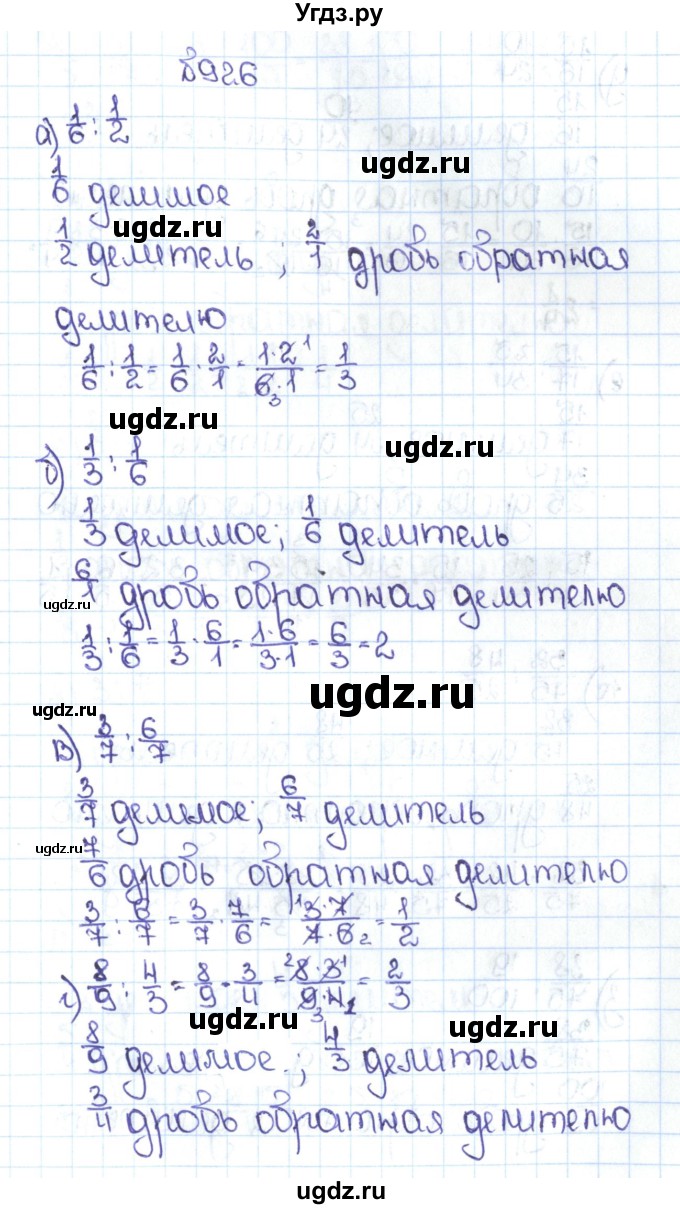 Угдз.ру
№926
а) 1/6 : 1/2
ugdz.ru
1/6 делимое
ugdz.ru
1/2 делитель ; 2/1 дробь обратная
делителю
1/6 : 1/2 = 1/6 · 2/1 = 1·2/6·1 = 1/3
ugdz.ru
б) 1/3 : 1/6
ugdz.ru
1/3 делимое; 1/6 делитель
6/1 дробь обратная делителю
ugdz.ru
1/3 : 1/6 = 1/3 · 6/1 = 1·6/3·1 = 6/3 = 2
ugdz.ru
ugdz.ru
в) 3/7 : 6/7
3/7 делимое; 6/7 делитель
ugdz.ru
7/6 дробь обратная делителю
3/7 : 6/7 = 3/7 · 7/6 = 3·7/7·6 = 1/2
г) 8/9 : 4/3 = 8/9 · 3/4 = 8·3/9·4 = 2/3
ugdz.ru
ugdz.ru
8/9 делимое ; 4/3 делитель
3/4 дробь обратная делителю
ugdz.ru